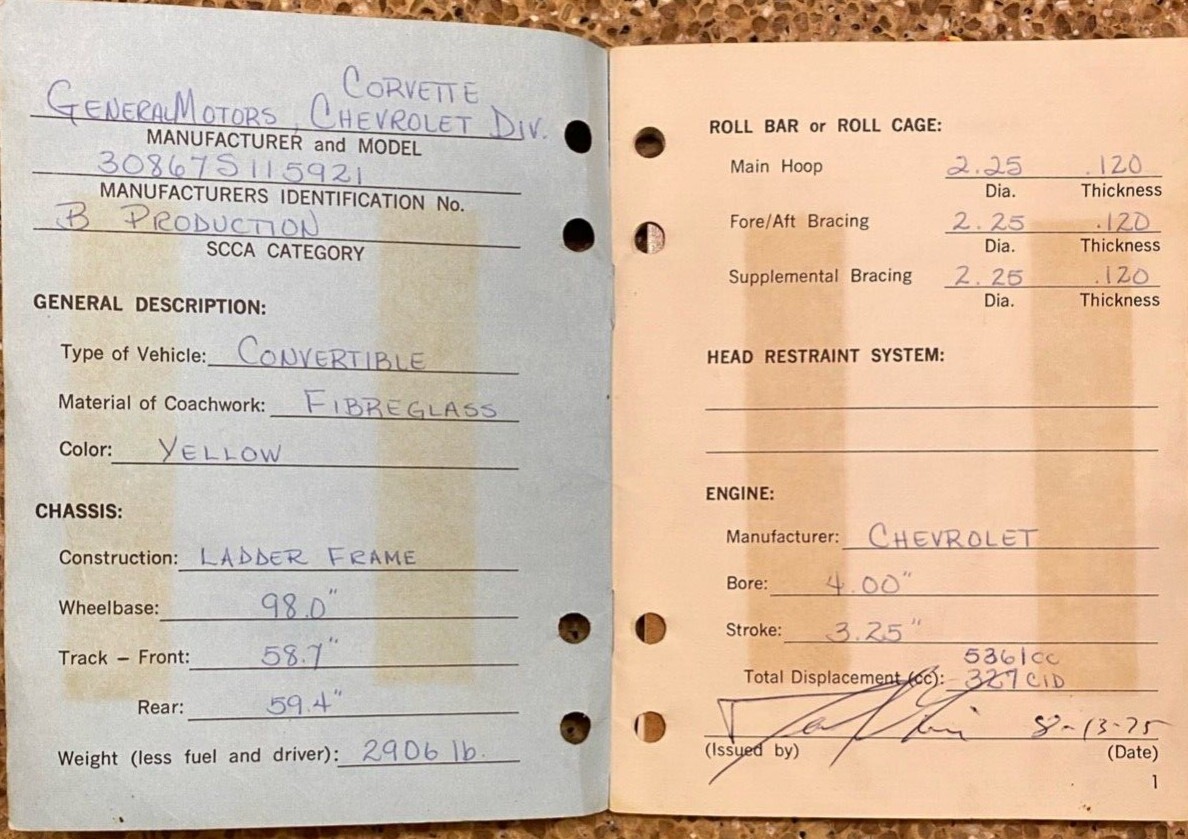 CORVETTE
GENERAL MOTORS, CHEVROLET DIV.
MANUFACTURER and MODEL
30867S115921
MANUFACTURERS IDENTIFICATION No.
B PRODUCTION
SCCA CATEGORY
GENERAL DESCRIPTION:
Type of Vehicle: CONVERTIBLE
Material of Coachwork: FIBREGLASS
Color: YELLOW
CHASSIS:
Construction: LADDER FRAME
Wheelbase: 98.0"
Track – Front: 58.7"
Rear: 59.4"
Weight (less fuel and driver): 2906 lb.
ROLL BAR or ROLL CAGE:
Main Hoop 2.25 .120
Dia. Thickness
Fore/Aft Bracing 2.25 .120
Dia. Thickness
Supplemental Bracing 2.25 .120
Dia. Thickness
HEAD RESTRAINT SYSTEM:
ENGINE:
Manufacturer: CHEVROLET
Bore: 4.00"
Stroke: 3.25"
5361cc
Total Displacement (cc): 327 CID
8-13-75
(Issued by) (Date)
1